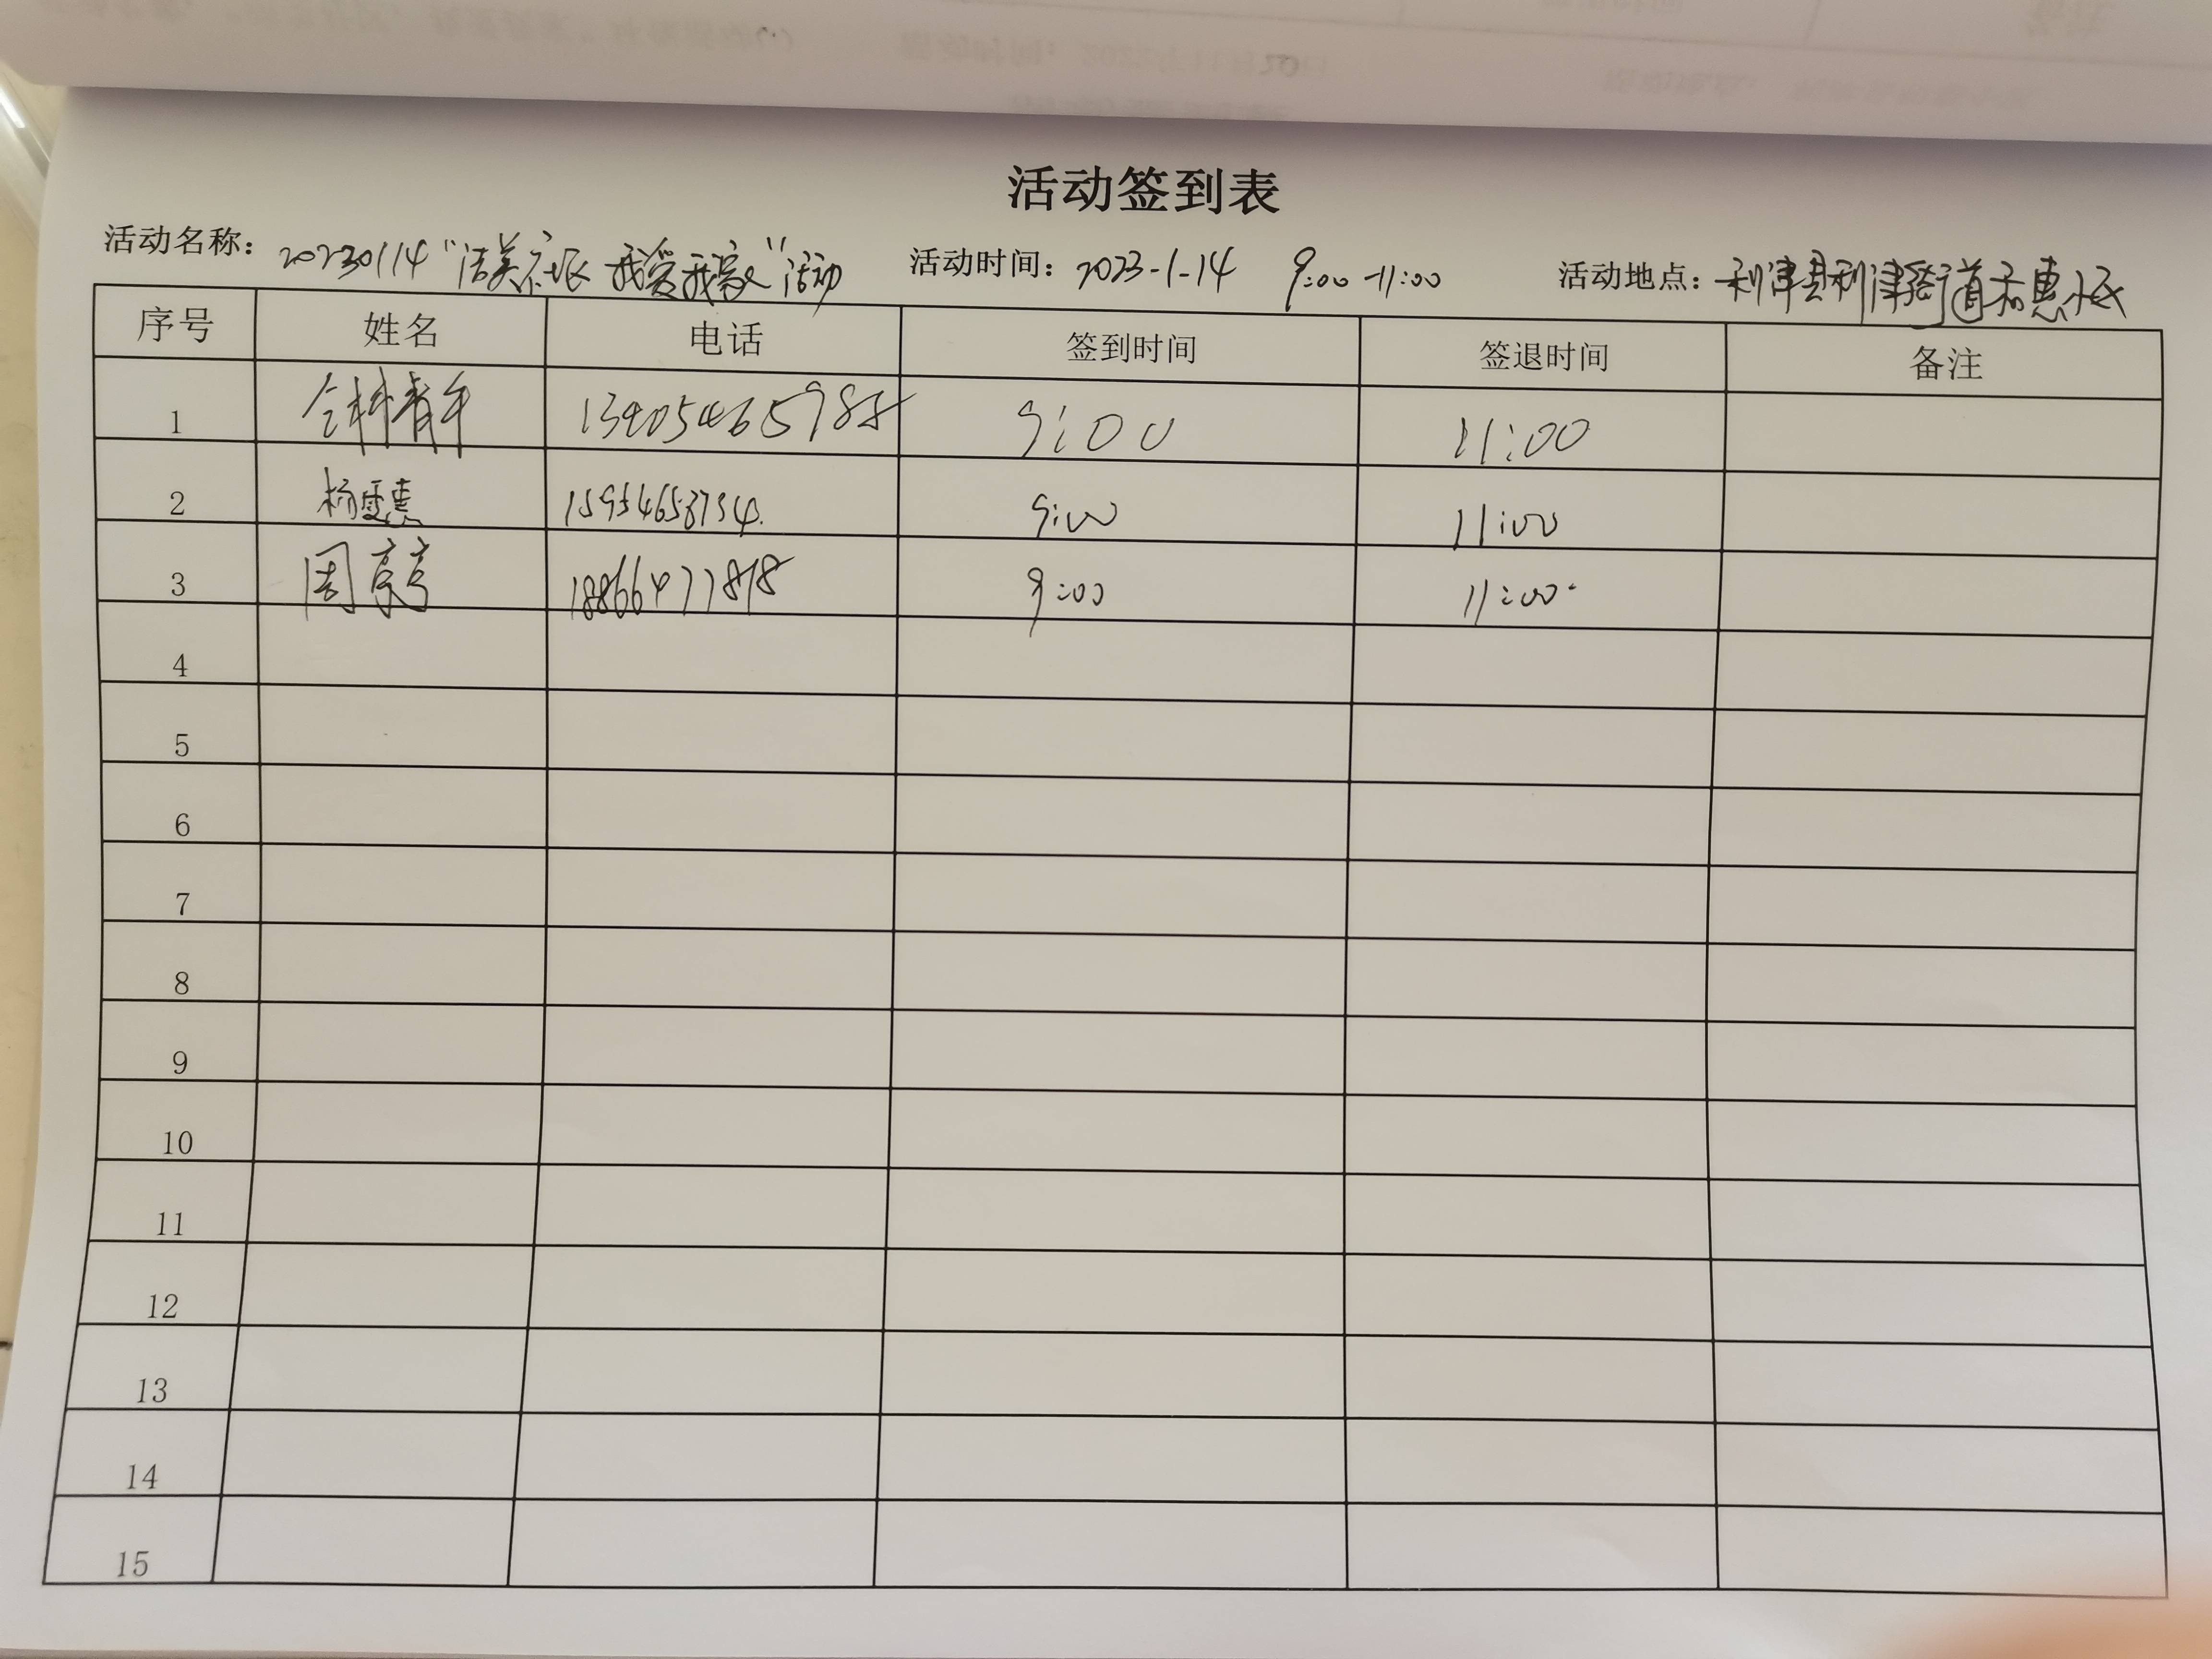 活动签到表
活动名称：20230114“洁美社区 我爱我家”活动 活动时间：2023-1-14 9:00-11:00 活动地点：利津县利津街道和惠小区
序号 姓名 电话 签到时间 签退时间 备注
1 13905465985 9:00 11:00
2 杨雯惠 15954653734 9:00 11:00
3 周亭亭 18866477818 9:00 11:00
4
5
6
7
8
9
10
11
12
13
14
15